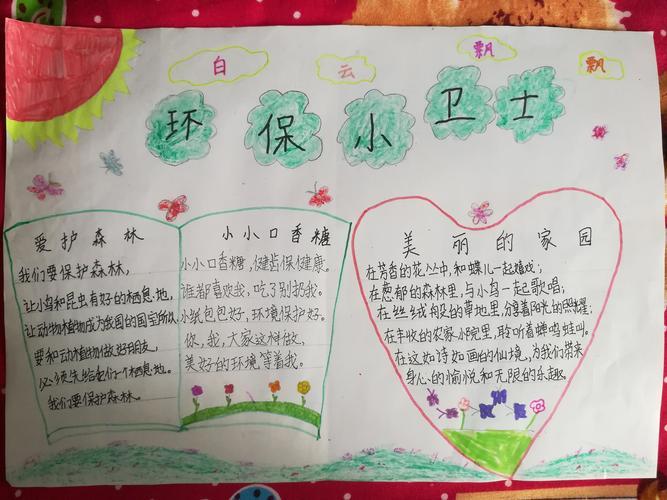 白云飘飘
环保小卫士
爱护森林
我们要保护森林，
让小鸟和昆虫有好的栖息地，
让动物植物成为我国的国宝所以
要和动植物做好朋友，
必须先给它们一个栖息地。
我们要保护森林。
小小口香糖
小小口香糖，健齿保健康。
谁都喜欢我，吃了别扔我。
小纸包包好，环境保护好。
你，我，大家这样做，
美好的环境等着我。
美丽的家园
在芳香的花丛中，和蝶儿一起嬉戏；
在葱郁的森林里，与小鸟一起歌唱；
在丝绒般的草地里，分享着阳光的照耀；
在丰收的农家小院里，聆听着蝉鸣蛙叫。
在这如诗如画的仙境，为我们带来
身心的愉悦和无限的乐趣。